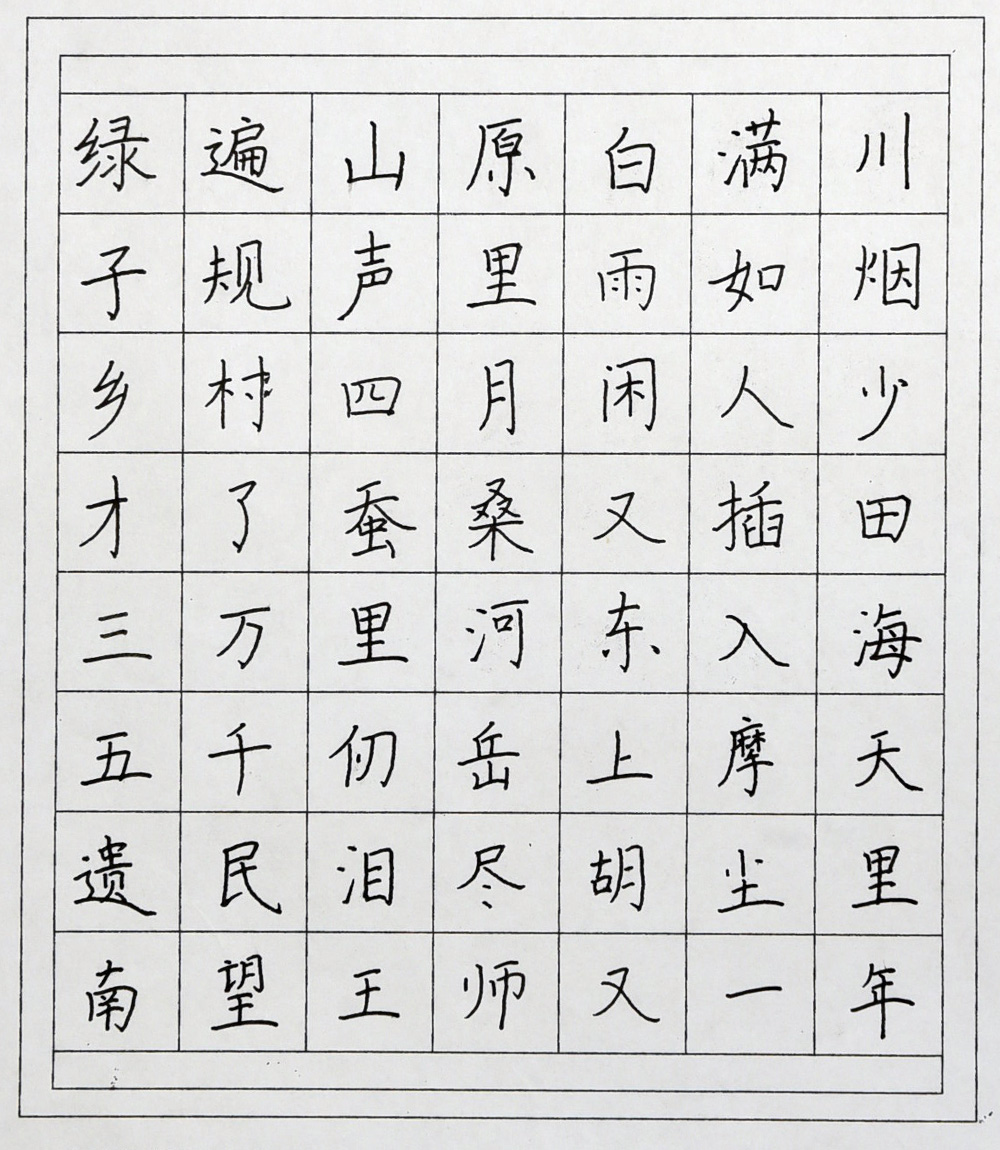 绿遍山原白满川
子规声里雨如烟
乡村四月闲人少
才了蚕桑又插田
三万里河东入海
五千仞岳上摩天
遗民泪尽胡尘里
南望王师又一年